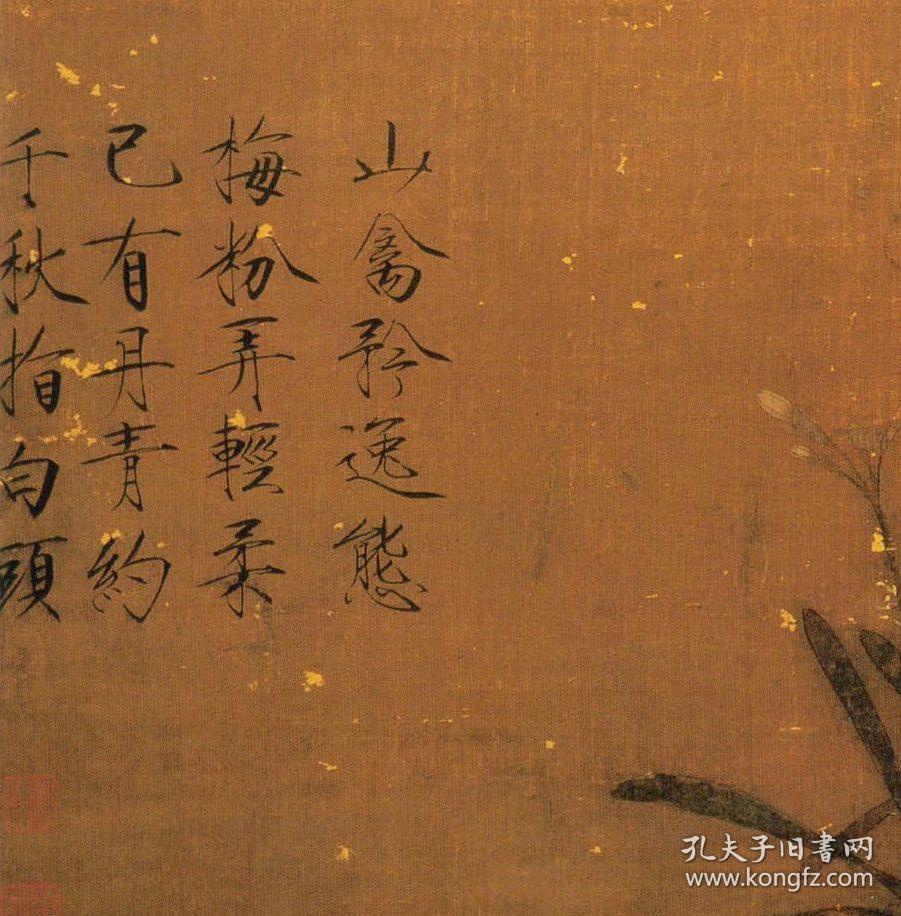 山禽矜逸態
梅粉弄輕柔
已有丹青約
千秋指白頭
孔夫子旧書网
www.kongfz.com